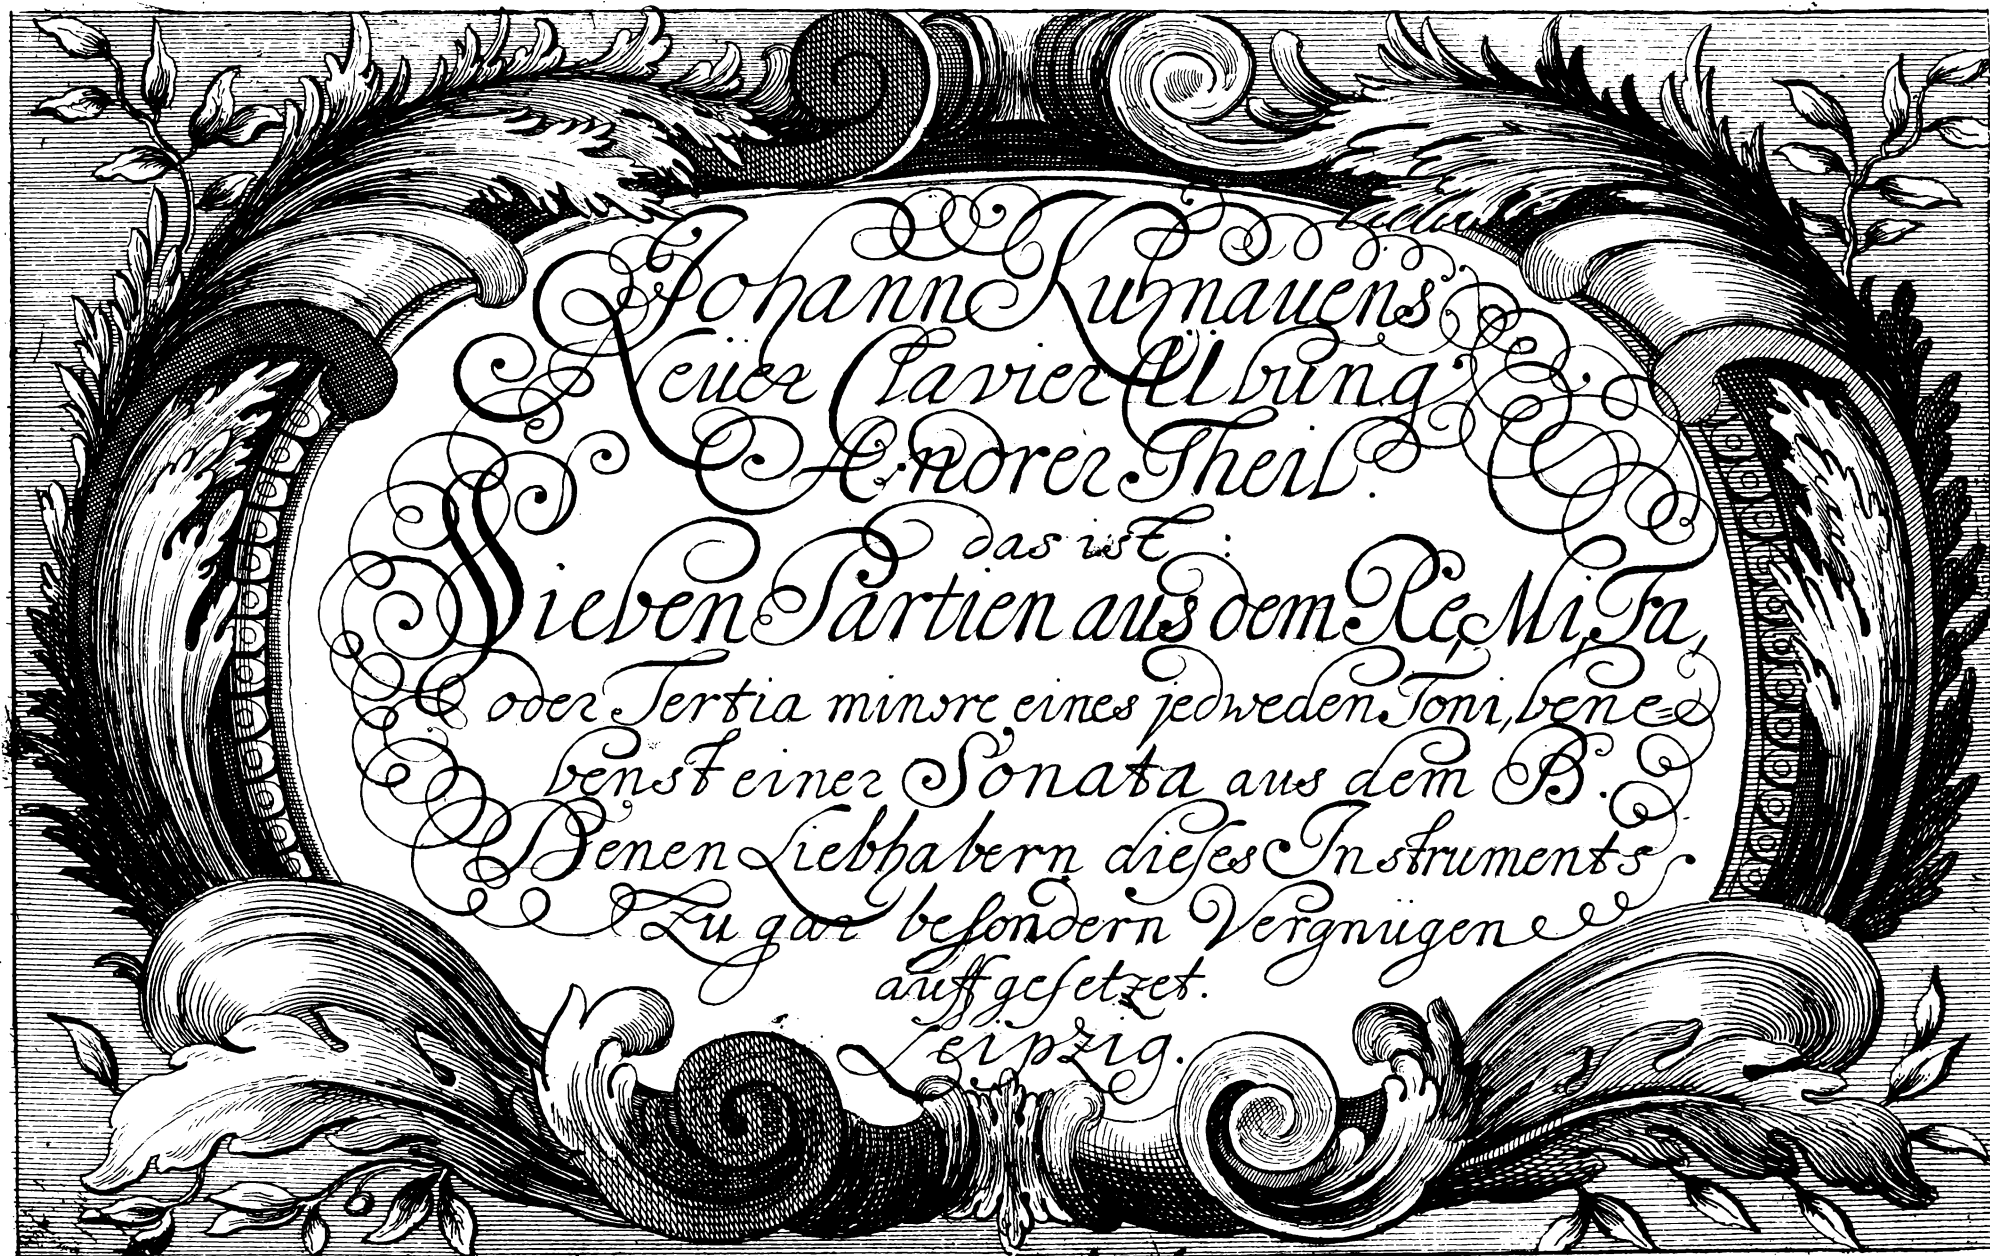 Johann Kuhnauens
Neüer Clavier Übung
Andrer Theil.
das ist:
Sieben Partien aus dem Re, Mi, Fa,
oder Tertia minore eines jedweden Toni, bene=
benst einer Sonata aus dem B.
Denen Liebhabern dieses Instruments
zu gar besondern Vergnügen
auffgesetzet.
Leipzig.